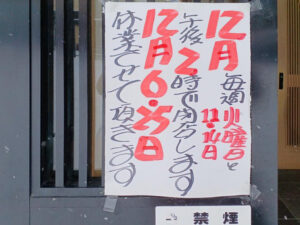 12月
毎週火曜日と
11・14日
午後2時で閉店します
12月6・25日
休業させて頂きます
禁煙